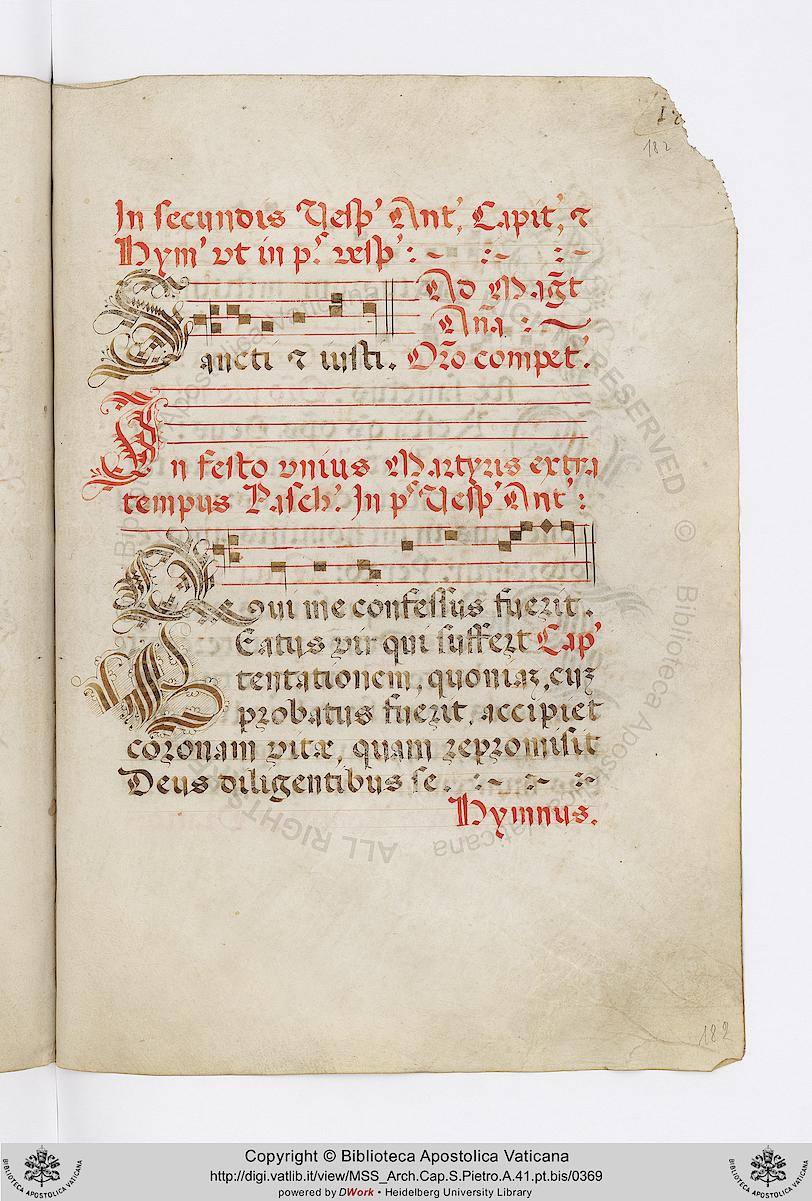 182
In secundis Vesp' Ant', Capit', ⁊
Hym' vt in p.ˢ vesp':
Ad Mag̃t
Aña
Sancti ⁊ iusti. Or̃o compet'.
In festo vnius Martyris extra
tempus Pasch'. In pˢ Vesp' Ant':
Qui me confessus fuerit.
BEatus vir qui suffert Cap'
tentationem, quoniaꝫ, cuꝫ
probatus fuerit, accipiet
coronam vitæ, quam repromisit
Deus diligentibus se.
Hymnus.
182
Copyright © Biblioteca Apostolica Vaticana
http://digi.vatlib.it/view/MSS_Arch.Cap.S.Pietro.A.41.pt.bis/0369
powered by DWork • Heidelberg University Library
BIBLIOTECA APOSTOLICA VATICANA
BIBLIOTECA APOSTOLICA VATICANA